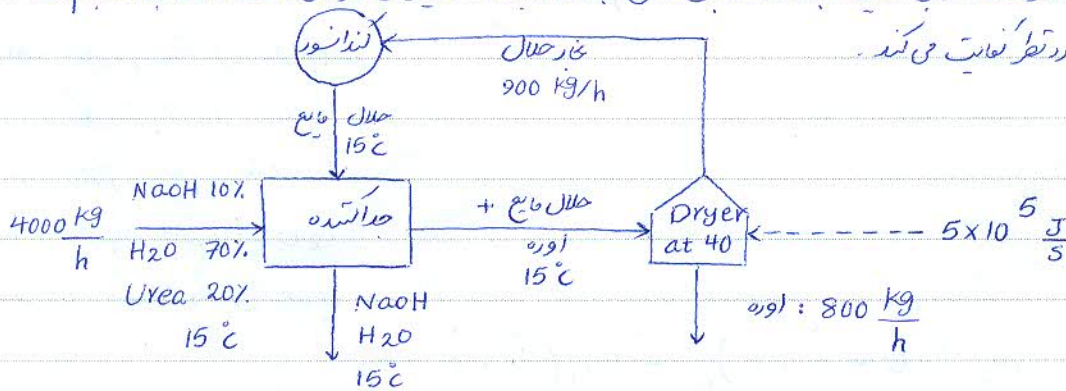 در نظر کفایت می کند.
کندانسور
بخار حلال
900 kg/h
حلال مایع
15°C
4000 kg/h
NaOH 10%
H2O 70%
Urea 20%
15°C
جداکننده
حلال مایع +
اوره
15°C
Dryer
at 40
5×10^5 J/s
NaOH
H2O
15°C
اوره : 800 kg/h